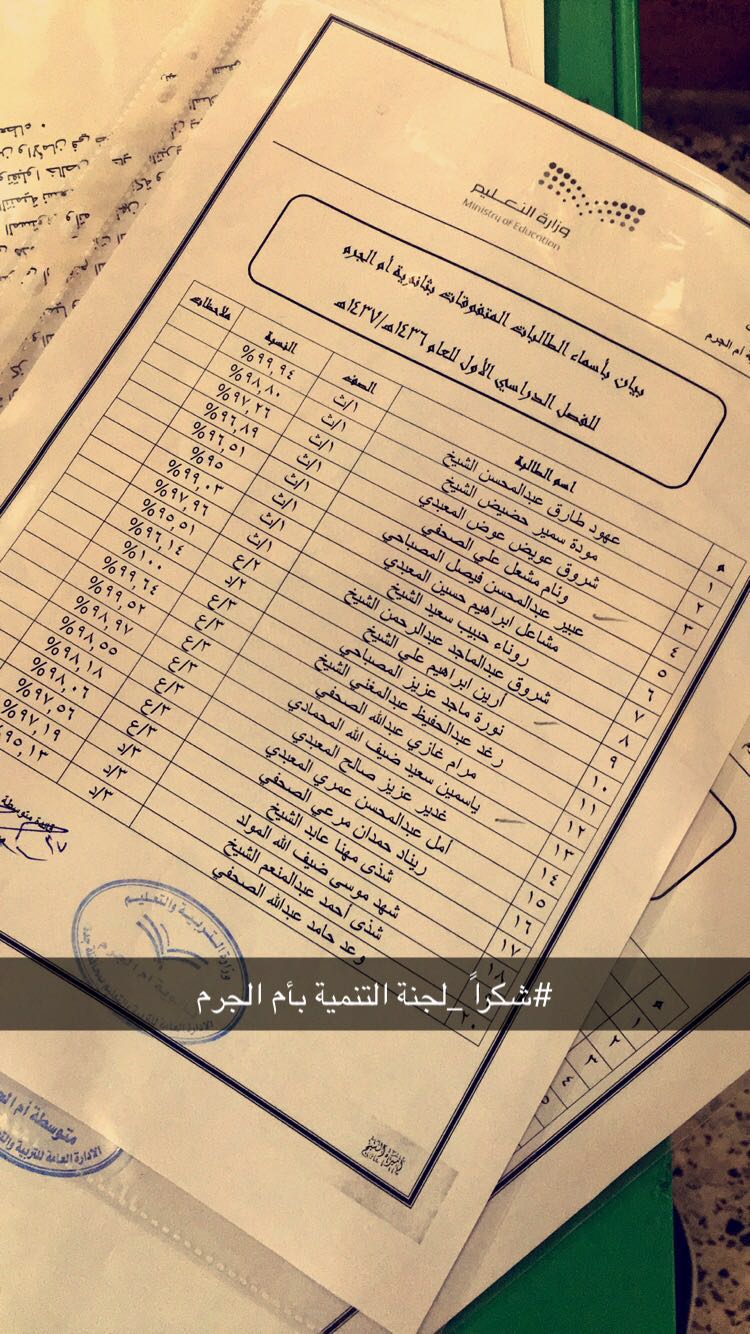 وزارة التعليم
Ministry of Education
بيان بأسماء الطالبات المتفوقات بثانوية أم الجرم
للفصل الدراسي الأول للعام ١٤٣٦هـ/١٤٣٧هـ
م اسم الطالبة الصف النسبة ملاحظات
١ عهود طارق عبدالمحسن الشيخ ١/ث ٩٩,٩٤%
٢ مودة سمير حضيض الشيخ ١/ث ٩٨,٨٠%
٣ شروق عويض عوض المعبدي ١/ث ٩٧,٢٦%
٤ ونام مشعل علي الصحفي ١/ث ٩٦,٨٩%
٥ عبير عبدالمحسن فيصل المصباحي ١/ث ٩٦,٥١%
٦ مشاعل ابراهيم حسين المعبدي ١/ث ٩٥%
٧ روناء حبيب سعيد الشيخ ٢/ع ٩٩,٠٣%
٨ شروق عبدالماجد عبدالرحمن الشيخ ٢/د ٩٧,٩٦%
٩ أرين ابراهيم علي الشيخ ٩٥,٥١%
١٠ نورة ماجد عزيز المصباحي ٩٦,١٤%
١١ رغد عبدالحفيظ عبدالمغني الشيخ ٣/ع ١٠٠%
١٢ مرام غازي عبدالله الصحفي ٣/ع ٩٩,٦٤%
١٣ ياسمين سعيد ضيف الله المحمادي ٣/ع ٩٩,٥٢%
١٤ غدير عزيز صالح المعبدي ٣/ع ٩٨,٩٧%
١٥ أمل عبدالمحسن عمري المعبدي ٣/ع ٩٨,٥٥%
١٦ ريناد حمدان مرعي الصحفي ٣/ع ٩٨,١٨%
١٧ شذى مهنا عابد الشيخ ٩٨,٠٦%
١٨ شهد موسى ضيف الله المولد ٣/د ٩٧,٥٦%
شذى أحمد عبدالمنعم الشيخ ٣/د ٩٧,١٩%
٢٠ وعد حامد عبدالله الصحفي ٣/د ٩٥,١٣%
وزارة التربية والتعليم
#شكراً _لجنة التنمية بأم الجرم
متوسطة أم
الادارة العامة للتربية